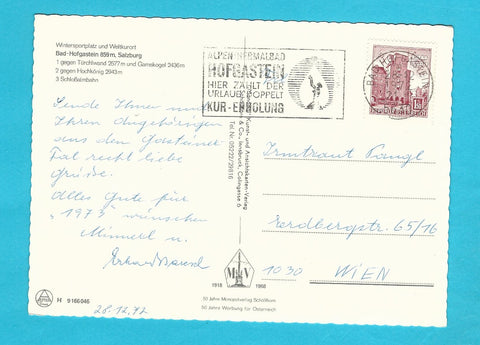 Wintersportplatz und Weltkurort
Bad-Hofgastein 859 m, Salzburg
1 gegen Türchlwand 2577 m und Gamskogel 2436 m
2 gegen Hochkönig 2943 m
3 Schloßalmbahn
ALPEN-THERMALBAD
HOFGASTEIN
HIER ZÄHLT DER
URLAUB DOPPELT
KUR-ERHOLUNG
BAD HOFGASTEIN
REPUBLIK ÖSTERREICH
Sende Ihnen und
Ihren Angehörigen
aus dem Gasteiner
Tal recht liebe
Grüße.
Alles Gute für
"1973" wünschen
u.
Erhard
28.12.72
Kunst- und Ansichtskarten-Verlag
& Co., Innsbruck,
Tel. Nr. 05222/29816
Irmtraut
Erdbergstr. 65/16
1030 WIEN
M V
1918 1968
50 Jahre Monopolverlag Schöllhorn
50 Jahre Werbung für Österreich
H 9166046